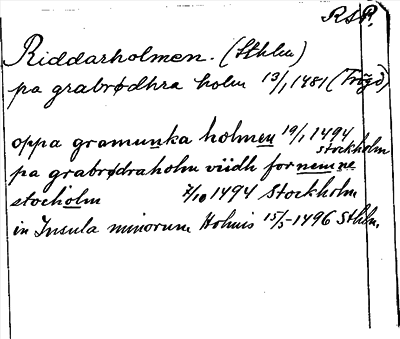 RSP.
Riddarholmen. (Sthlm)
pa grabrødhra holm 13/1 1481 (Trögd)
oppa gramunka holmen 19/1 1494 Stockholm
pa grabrødraholm viidh fornemne
stocholm 7/10 1494 Stockholm
in Insula minorum Holmis 15/5 1496 Sthlm.